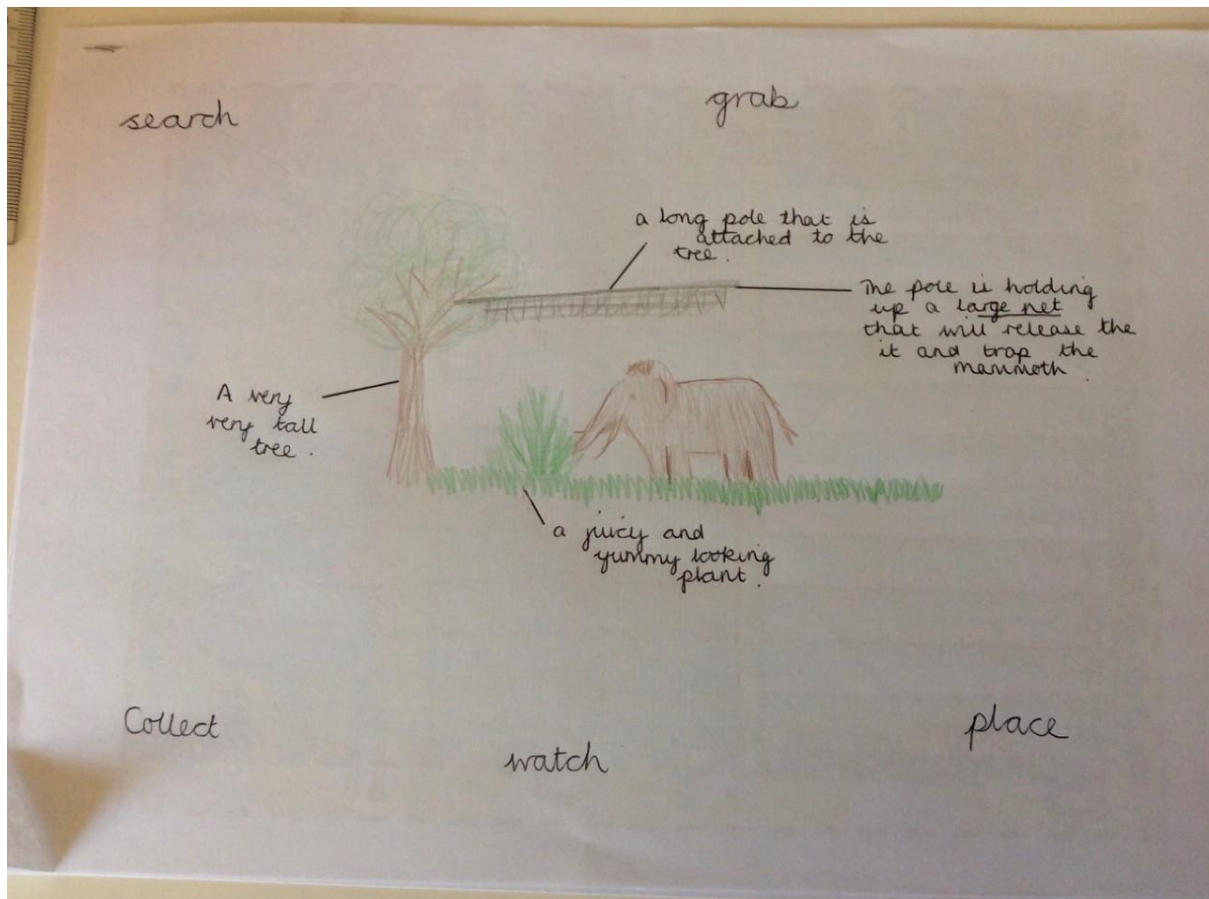 search
grab
a long pole that is
attached to the
tree.
The pole is holding
up a large net
that will release the
it and trap the
mammoth.
A very
very tall
tree.
a juicy and
yummy looking
plant.
Collect
watch
place